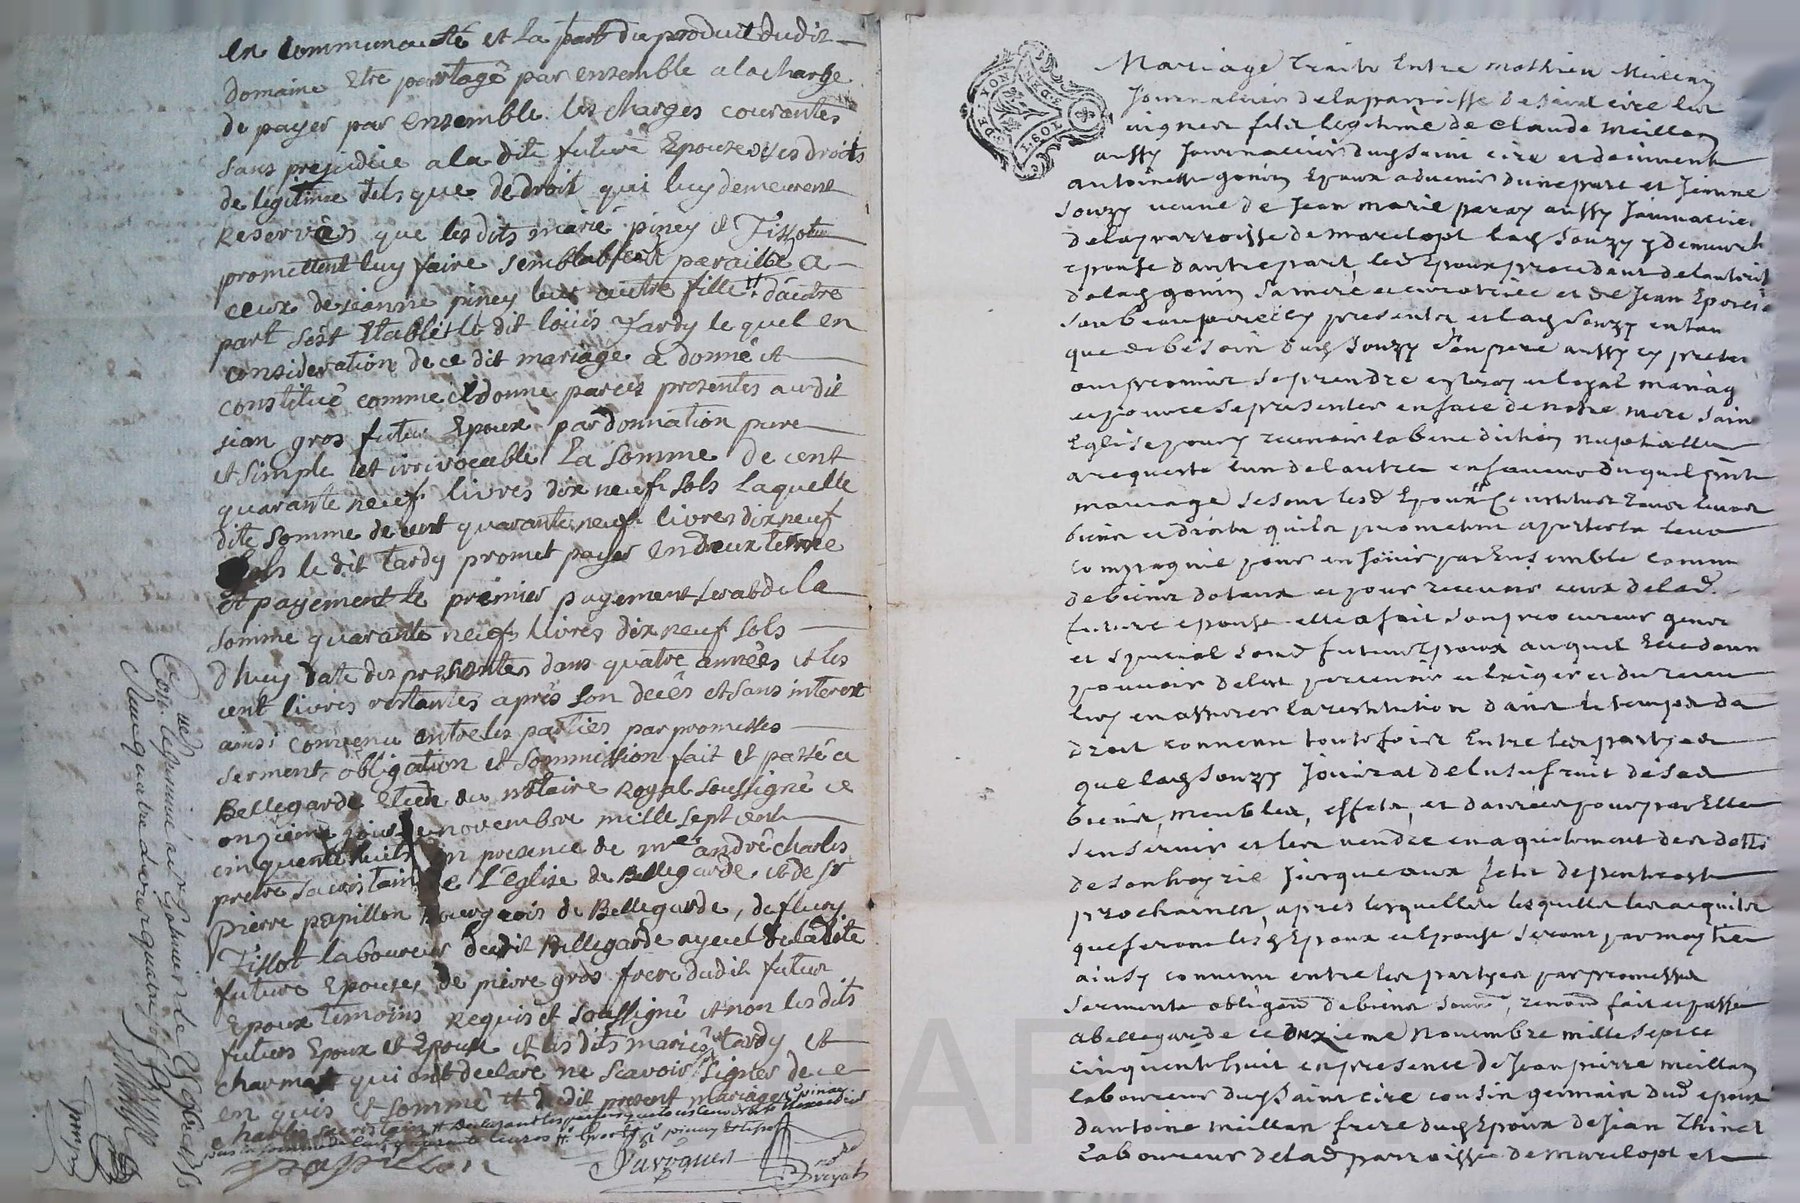 en communauté et la part du produit dudit
domaine Etre partagé par ensemble a la charge
de payer par ensemble les charges courantes
sans prejudice a la dite future Epouse de ses droits
de legitime tels que de droit qui luy demeurent
Reservés que les dits marié piney et Tissot
promettent luy faire semblables et pareille a
ceux de jeanne piney leur autre fille d'autre
part s'est Etablit le dit loüis Tardy le quel en
consideration de ce dit mariage a donné et
constitué comme il donne par ces presentes audit
jean gros futur Epoux par donnation pure
et simple et irrivocable La somme de cent
quarante neuf livres dix neuf sols Laquelle
dite somme de cent quarante neuf livres dix neuf
sols le dit tardy promet payer en deux terme
et payement le premier payement sera de la
somme quarante neuf livres dix neuf sols
d'huy date des presentes dans quatre années et les
cent livres restantes après son decès et sans interest
ainsi convenu entre les parties par promesses
serment, obligation et sommission fait et passé a
Bellegarde Etude du notaire Royal soussigné ce
onzième jour de novembre mille sept cent
cinquante huit en presence de mre andré charles
pretre sacristain de L'Eglise de Bellegarde, et de sr
pierre papillon Bourgeois de Bellegarde, de fleury
Tissot laboureur dudit Bellegarde ayeul de la dite
future Epouse, de pierre gros frere dudit futur
Epoux temoins Requis et soussigné et non les dits
futurs Epoux et Epouse et les dits mariés tardy et
charmet qui ont declaré ne scavoir signer de ce
en quis et sommé et dudit present mariage
papillon
Mariage traité Entre mathieu Meillan
Journallier de la parroisse de saint cire les
vignes fils legitime de Claude meillan
aussy Journallier dudt saint cire et deffunte
antoinette gonin Epoux advenir d'une part et Jeanne
Souzy veuve de Jean marie peray aussy Journallier
de la parroisse de marclopt ladt Souzy y demeurant
epouse d'autre part, led Epoux procedant de l'autorité
de ladt gonin sa mere et curatrice et de Jean
son beaupere icy present et ladt Souzy en tan
que de besoin dudt Souzy son pere aussy cy present
ont promis se prendre en vray et loyal mariage
et pource se presenter en face de notre mere Sainte
Eglise pour y recevoir la benediction nuptialle
a requeste l'un de l'autre en faveur duquel present
mariage se sont lesd Epoux Constitués tous leurs
biens et droits qu'ils promettent aporter a leur
compagnie pour en joüir par Ensemble comme
de biens dotaux et pour recevoir ceux de lad.
future epouse elle a fait son procureur general
et special sond futur Epoux auquel Elle donne
pouvoir de les percevoir et exiger et du recu
luy en assurer la restitution dans le temps de
droit convenu toutefois Entre les partyes
que ladt Souzy Jouirat de l'usufruit de ses
biens, meubles, effets, et danrées pour par Elle
s'en servir et les vendre en aquitement des dettes
de son hoyrie Jusque aux fete de pentecoste
prochaines, apres lesquelles les aquits
que feront lesdt Epoux et Epouse seront par moytié
ainsy convenu entre les partyes par promesses
serments obligaon de biens soumis, renonc fait et passé
a bellegarde ce onzieme Novembre mille sept ce
cinquante huit en presence de Jean pierre meillan
laboureur dudt Saint cire cousin germain dud epoux
d'antoine meillan frere dudt Epoux de Jean Thinet
laboureur de lad parroisse de marclopt et